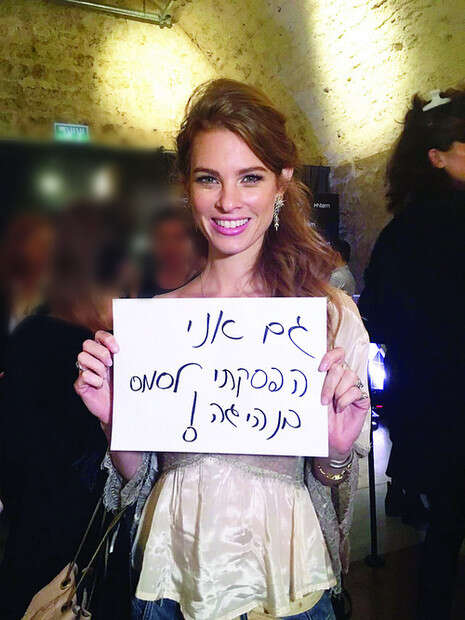 גם אני
הפסקתי לסמס
בנהיגה!